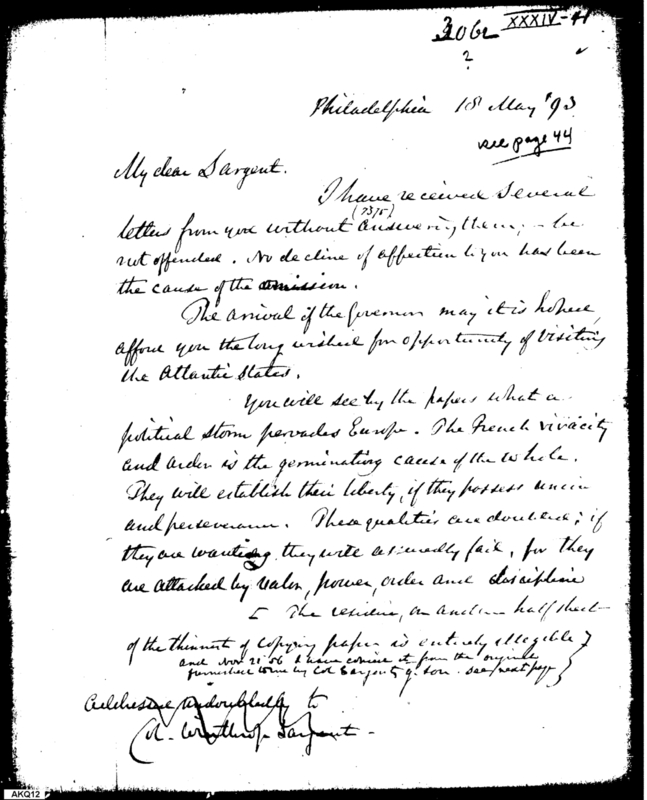 3062 XXXIV-41
?
Philadelphia 18 May '93
see page 44
My dear Sargent.
I have received several
letters from you without answering them; - be
not offended. No decline of affection to you has been
the cause of the omission.
The arrival of the Governor may it is hoped,
afford you the long wished for opportunity of visiting
the Atlantic States.
You will see by the papers what a
political storm pervades Europe. The French vivacity
and ardor is the germinating cause of the whole.
They will establish their liberty, if they possess union
and perseverance. These qualities are doubted; if
they are wanting they will assuredly fail, for they
are attacked by valor, power, order and discipline
[ The residue, on another half sheet
of the thinnest of copying paper is entirely illegible }
and Nov 21 '56 I have copied it from the original
furnished to me by Col Sargent's g. son. see next page
Addressed undoubtedly to
Col. Winthrop Sargent -
AKQ12